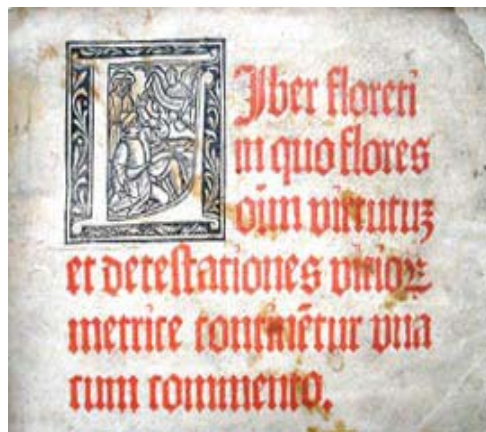 LIber floreti
in quo flores
oīm virtutuꝫ
et detestationes vitioꝝ
metrice continētur vna
cum commento.